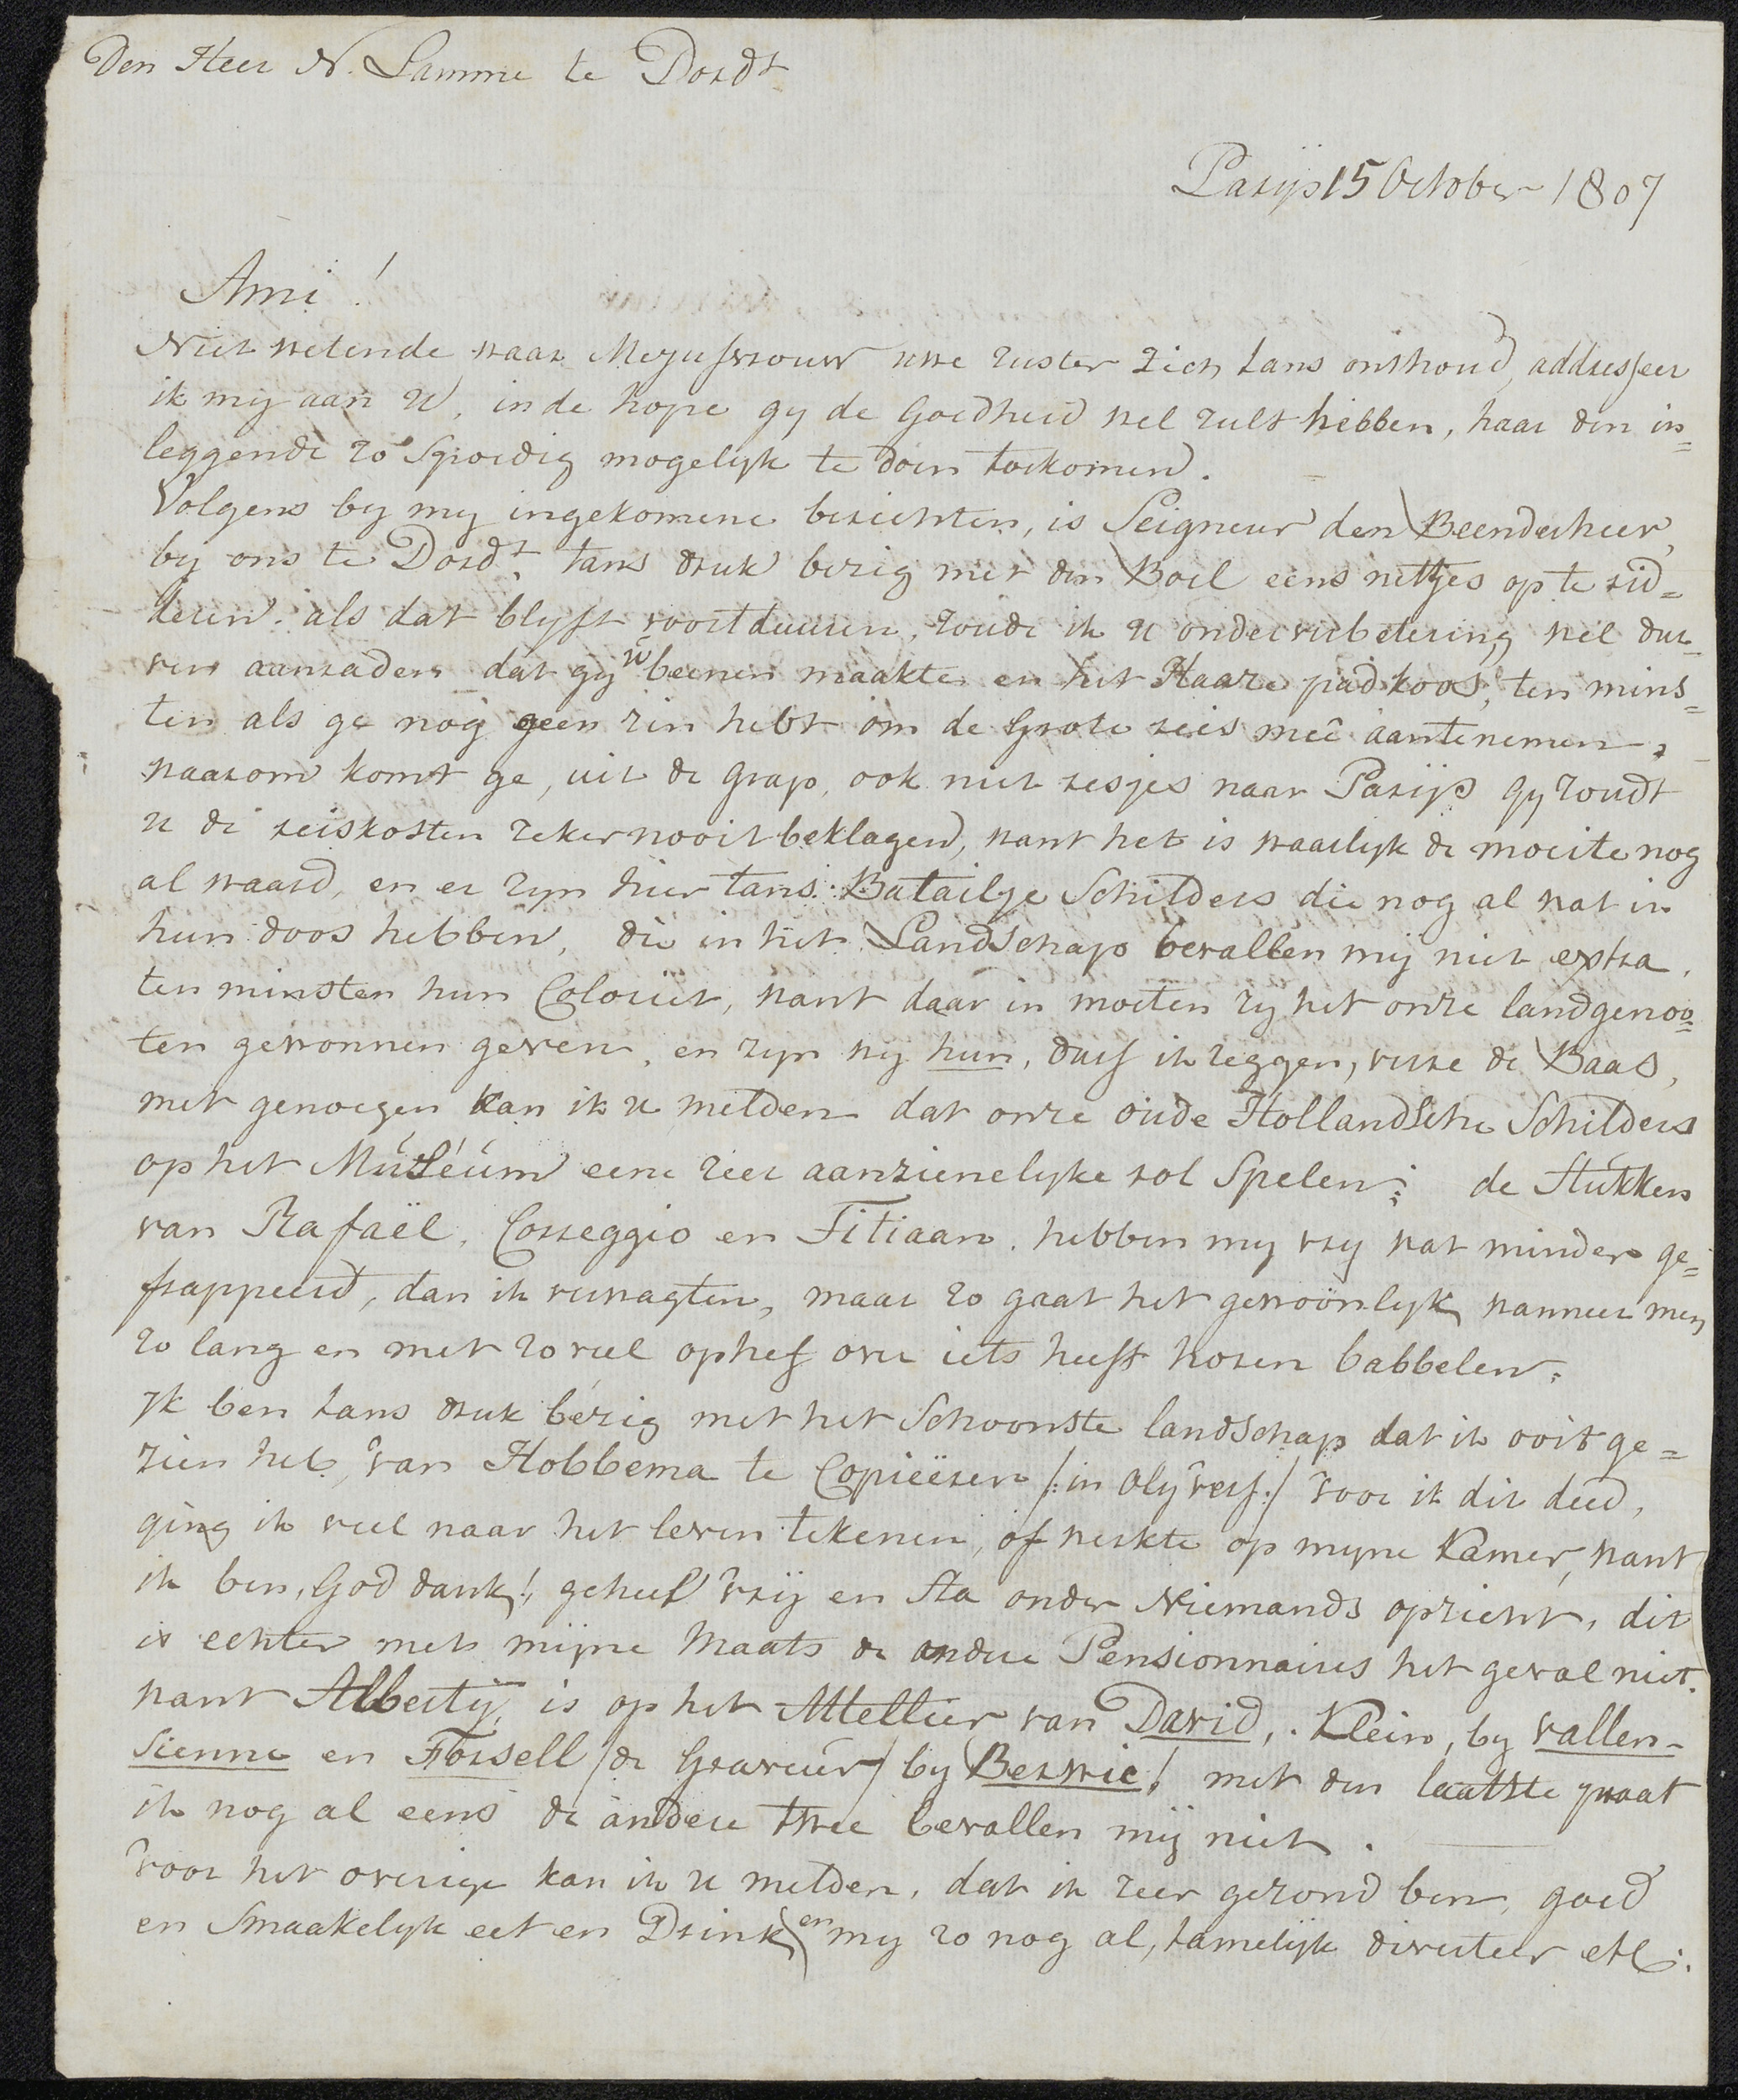 Den Heer N. Lamme te Dordt
Parÿs 15 October 1807
Ami!
Niet wetende waar Mejufvrouw uwe zuster zich tans onthoud, addresseer
ik mij aan U, in de hope gy de Goedheid wel zult hebben, haar den in=
leggende zo Spoedig mogelijk te doen toekomen.
Volgens by my ingekomene berichten, is Seigneur den Beenderheer,
by ons te Dordt, tans druk bezig met den Boel eens nettjes op te rid=
deren. als dat blyft voortduuren, zoude ik U onder verbetering wel dur=
ven aanraden dat gij w beenen maakte en het Haaze pad koos, ten mins=
ten als ge nog geen zin hebt om de Grote reis meê aantenemen,
waarom komt ge, uit de Grap, ook niet resjes naar Parÿs gy zoudt
U de reiskosten zeker nooit beklagen, want het is waarlyk de moeite nog
al waard, en er zyn hier tans Batailje Schilders die nog al wat in
hun doos hebben, die in het Landschap bevallen mij niet extra,
ten minsten hun Coloriet, want daar in moeten zy het onze landgenoo=
ten gewonnen geven, en zyn wy hun, durf ik zeggen, verre de Baas,
met genoegen kan ik U melden dat onze oude Hollandsche Schilders
op het Muséum eene zeer aanzienelyke rol Spelen; de Stukken
van Rafaël, Correggio en Titiaan. hebben my vry wat minder ge=
frappeerd, dan ik verwagten, maar zo gaat het gewoonlyk wanneer men
zo lang en met zo veel ophef over iets heeft horen babbelen;
Ik ben tans druk bezig met het Schoonste landschap dat ik ooit ge=
zien heb, van Hobbema te Copiëeren /:in olyverf:/ voor ik dit deed,
ging ik veel naar het leven tekenen, of werkte op myne Kamer, want
ik ben, God dank!, geheel vrij en Sta onder Niemands opzicht, dit
is echter met mijne Maats de andere Pensionnaires het geval niet.
want Alberty is op het Attellier van David, Klein, by vallen-
sienne en Forsell /de Graveur/ by Berwic! met den laatste praat
ik nog al eens de andere twee bevallen mij niet.
Voor het overige kan ik U melden, dat ik zeer gezond ben, goed
en Smaakelyk eet en Drink, en my zo nog al, tamelijk diverteer etc: